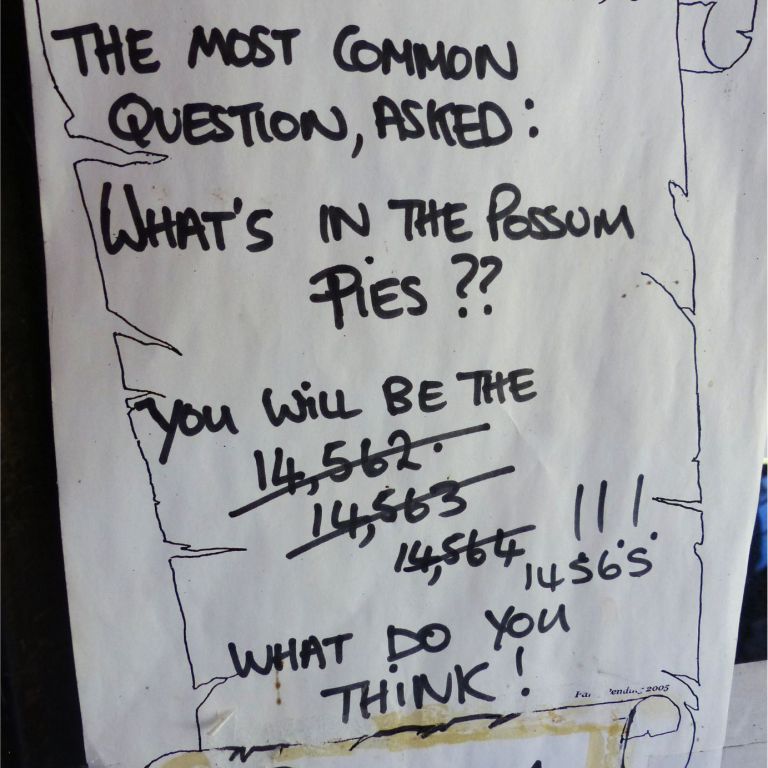 THE MOST COMMON
QUESTION, ASKED:
WHAT'S IN THE POSSUM
PIES ??
YOU WILL BE THE
14,562.
14,563
14,564
!!!
14565
WHAT DO YOU
THINK!
2005